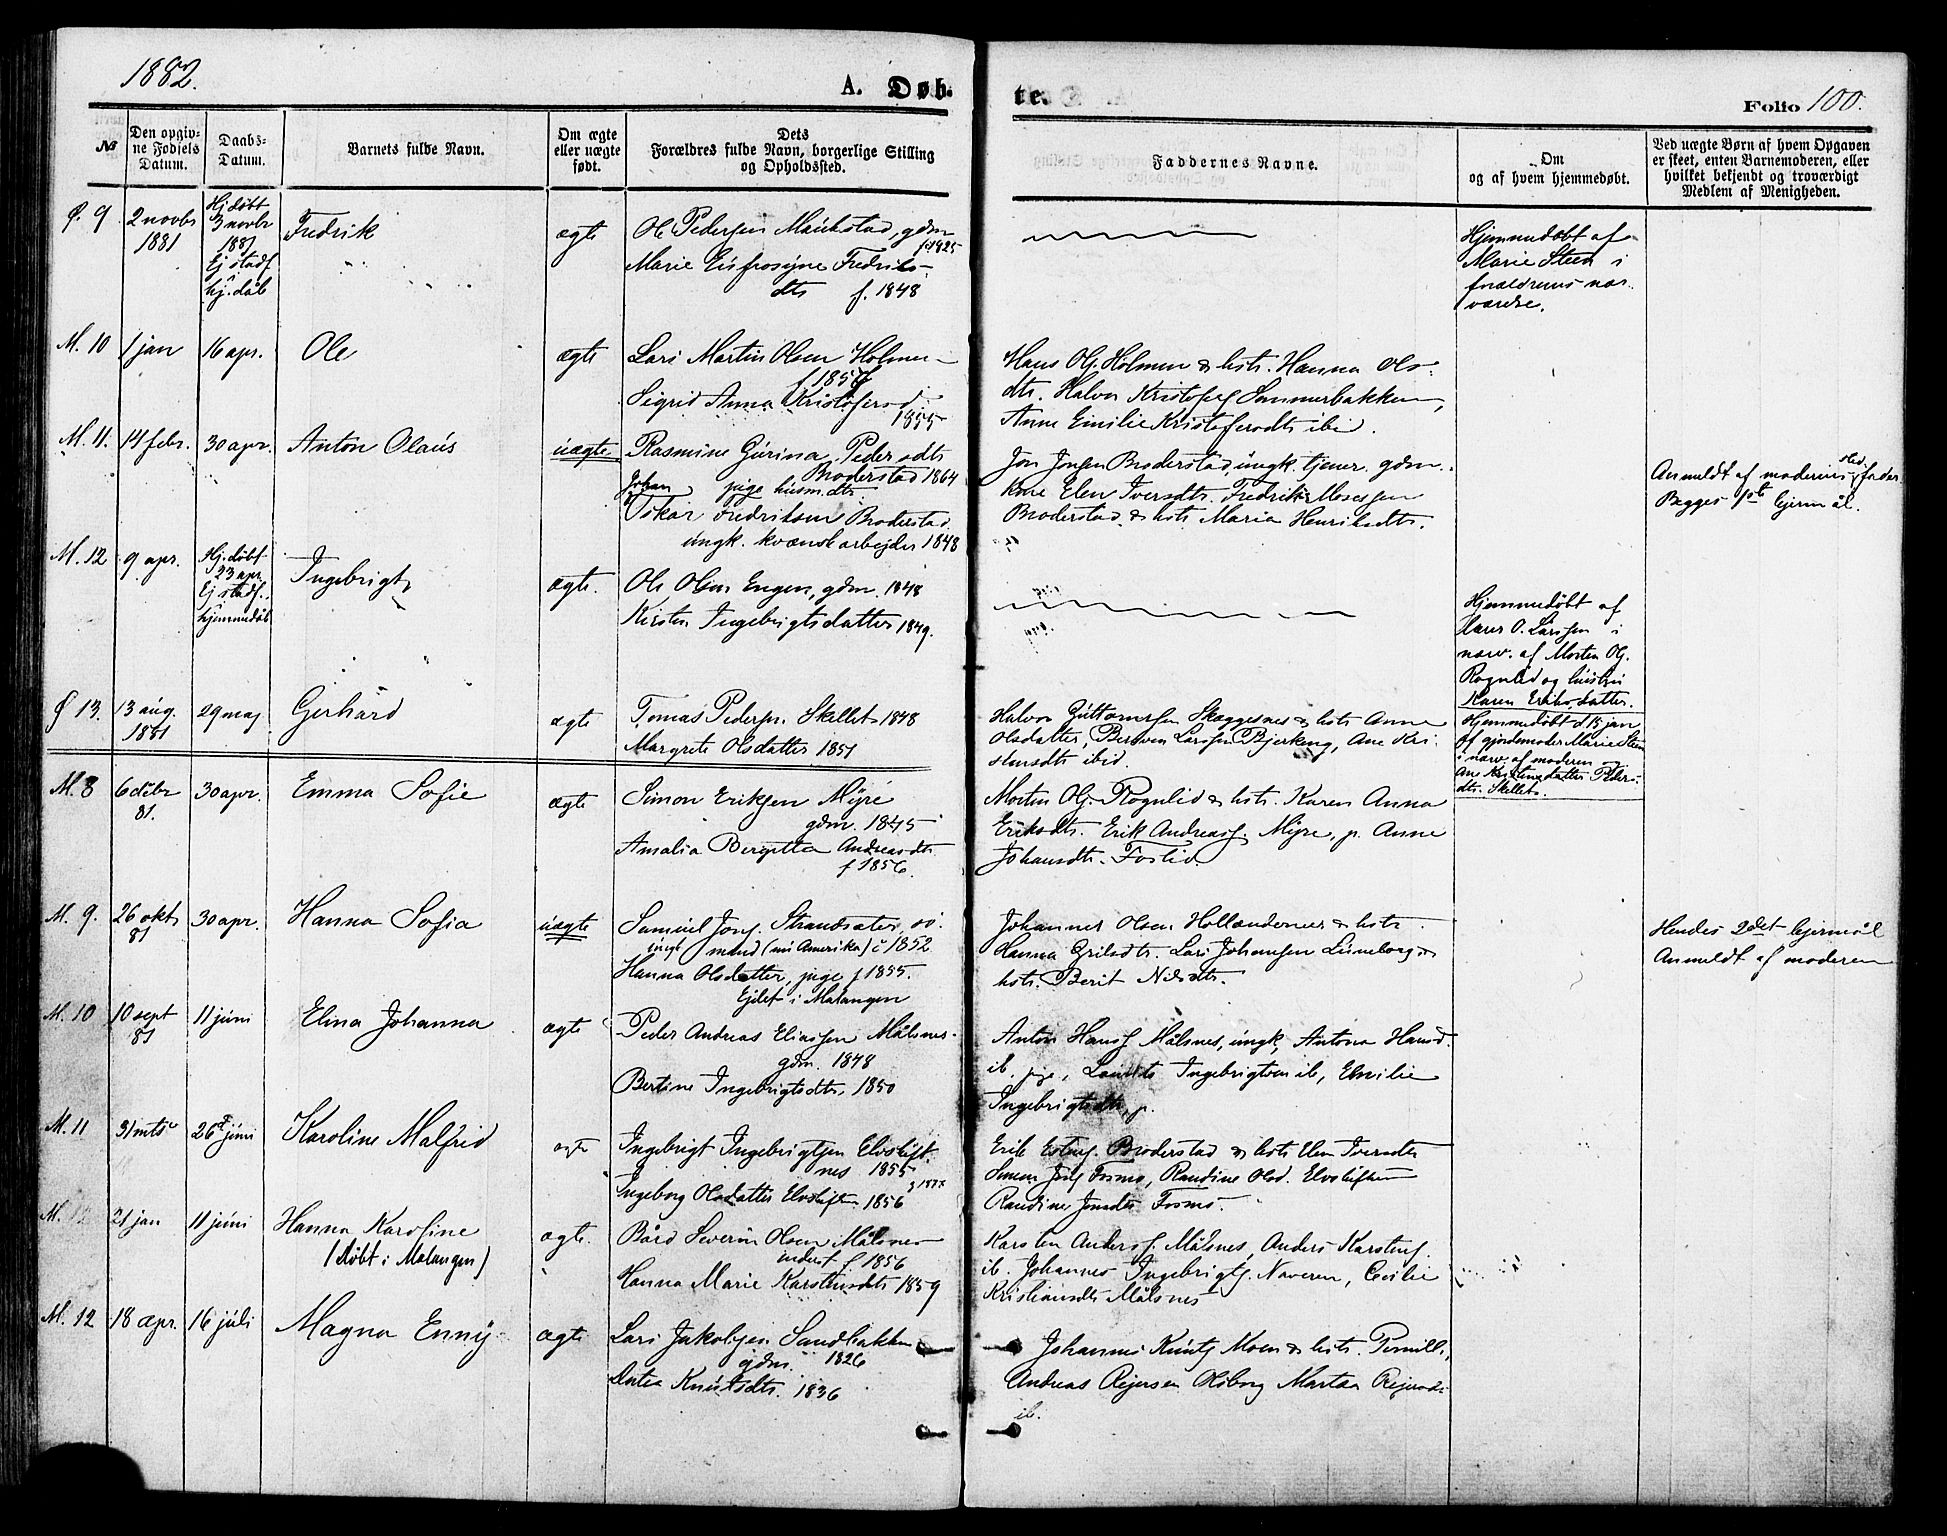 1882.
A. Døb-
te.
Folio 100.
№
Den opgiv-
ne Fødsels
Datum.
Daabs-
Datum.
Barnets fulde Navn.
Om ægte
eller uægte
født.
Dets
Forældres fulde Navn, borgerlige Stilling
og Opholdssted.
Faddernes Navne.
Om
og af hvem hjemmedøbt.
Ved uægte Børn af hvem Opgaven
er skeet, enten Barnemoderen, eller
hvilket bekjendt og troværdigt
Medlem af Menigheden.
Ø. 9
2 novbr
1881
Hj. døbt
3 novbr
1881
Ej stadf.
hj. dåb
Fredrik
ægte
Ole Pedersen gdm
f. 1825
Marie Eufrosyne Fredriks-
dtr f. 1848
Hjemmedøbt af
Marie Steen i
forældrenes nær-
værelse.
M. 10
1 jan
16 apr.
Ole
ægte
Lars Martin Olsen Holmen
f 1857
Sigrid Anna Kristofersd
1855
Hans Olj. Holmen & hstr. Hanna Ols-
dtr. Halvor Kristofers Sommerbakken,
Anne Emilie Kristofersdtr ibi.
M. 11.
14 febr.
30 apr.
Anton Olaus
uægte
Rasmine Gurina Pedersdtr
Broderstad 1864
pige husm.dtr.
Johan
Oskar Fredriksen Broderstad
ungk. kvænsk arbejder 1848
Jon Jonsen Broderstad, ungk. tjener. gdm.
kone Elen Iversdtr. Fredrik Mosessen
Broderstad & hstr Maria Henriksdtr.
Anmeldt af moderens fader
Begges 1ste lejermål.
M. 12
9 apr.
Hj. døbt
23 apr.
Ej stadf.
hjemmedåb
Ingebrigt
ægte.
Ole Olsen Engen, gdm. 1848
Kirsten Ingebrigtsdatter 1849.
Hjemmedøbt af
O. Larssen i
nærv. af Morten Olj.
Rognlid og hustru
Karen Eriksdatter.
Ø 13.
13 aug.
1881
29 maj
Gerhard
ægte
Tomas Peders. Skellet 1848
Margrete Olsdatter 1851
Halvor Guttormsen Skæggesnes & hstr Anne
Olsdatter, Larssen Bjerkeng, Ane Kri-
stensdtr ibid.
Hjemmedøbt d 15 jan
af gjordemoder Marie Steen
i nærv. af moderen og
Ane Kristine Peders-
dtr. Skellet.
M. 8
6 dcbr
81.
30 apr.
Emma Sofie
ægte
Simon Eriksen Myre
gdm. 1845
Amalia Bergitta Andreasdtr.
f 1856.
Morten Olj. Rognlid & hstr. Karen Anna
Eriksdtr. Erik Andreass. Myre, p. Anne
Johansdtr. Foslid.
M. 9.
26 okt
81
30 apr.
Hanna Sofia
uægte
Samuel Jons. Strandsæter,
ungk mand (nu Amerika) 1852
Hanna Olsdatter, pige f 1855.
Ejlet i Malangen
Johannes Olsen Hollendernes & hstr.
Hanna dtr. Lars Johansen Luneborg &
hstr. Berit Nilsdtr.
Hendes 2det lejermål
Anmeldt af moderen
M. 10
10 sept
81
11 juni
Elina Johanna
ægte
Peder Andreas Eliassen Målsnes
gdm. 1848
Bertine Ingebrigtsdtr, 1850
Anton Hans. Målsnes, ungk, Antona Hansd.
ib. pige, Ingebrigtsen ib, Emilie
Ingebrigtsdtr, p.
M. 11
31 mts
26 juni
Karoline Malfrid
ægte
Ingebrigt Ingebrigtsen Elvskift-
nes 1855
Ingeborg Olsdatter Elvskiften 1856
Erik Broderstad & hstr Elen Iversdtr
Simon Fosmo, Randine Olsd. Elvskiften
Randine Jonsdtr Fosmo.
M. 12
21 jan
11 juni
Hanna Karoline
(døbt i Malangen)
ægte.
Bård Severin Olsen Målsnes
inderst f 1856
Hanna Marie Karstensdtr 1859
Karsten Anders. Målsnes, Anders Karstens.
ib. Johannes Ingebrigts. Naveren, Cecilie
Kristiansdtr Målsnes
M. 12
18 apr.
16 juli
Magna Enny
ægte
Lars Jakobsen Sandbakken
gdm. 1826
Dortea Knutsdtr. 1836
Johannes Knuts Moen & hstr. Pernille,
Andreas Rejersen Olsborg Martaa Rejersdtr
ib.